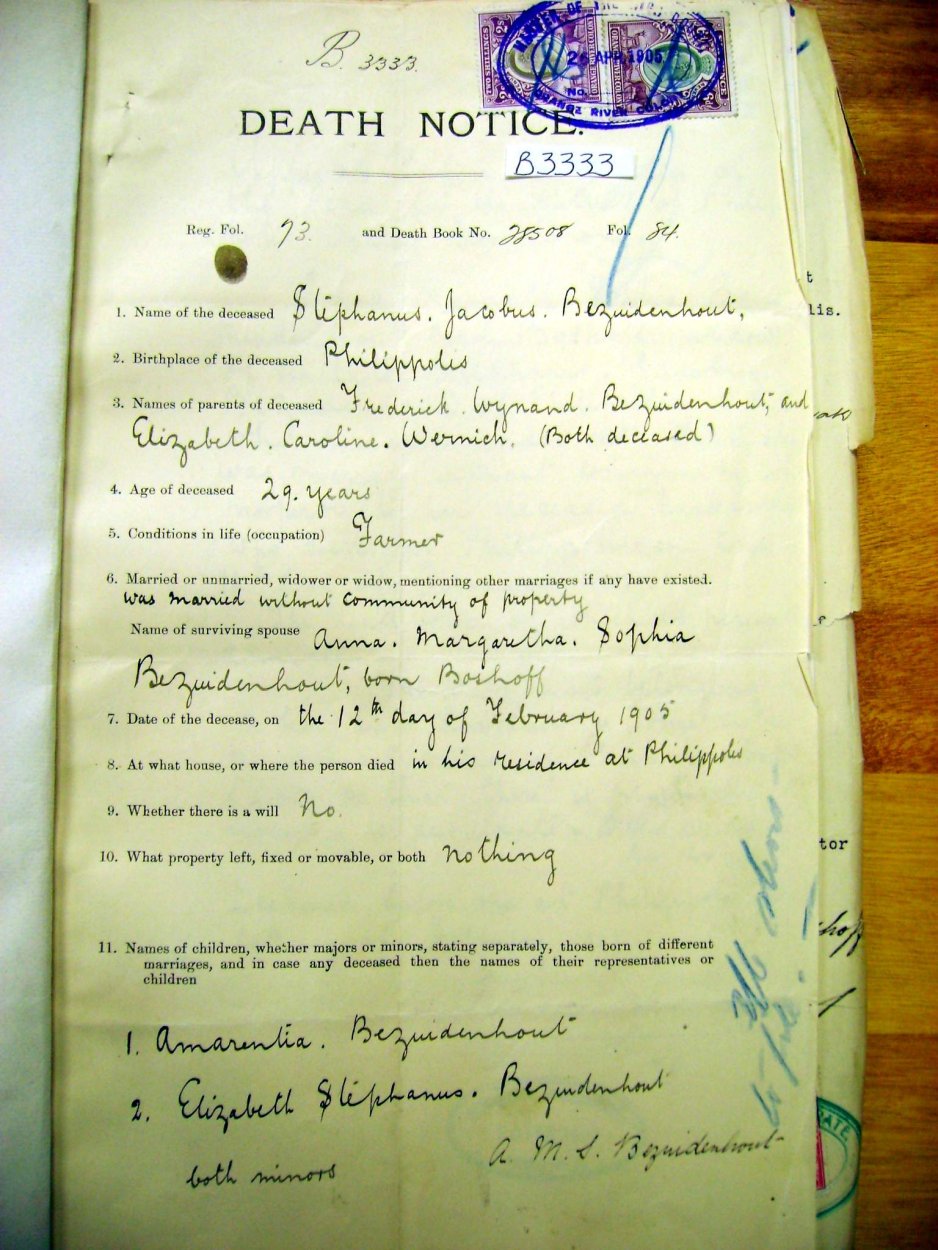 B. 3333.
TWO SHILLINGS
ORANGE RIVER COLONY
MASTER OF THE
26 APR 1905
No.
ORANGE RIVER COLONY
DEATH NOTICE.
B3333
Reg. Fol. 73. and Death Book No. 28508 Fol. 84.
1. Name of the deceased Stéphanus. Jacobus. Bezuidenhout,
2. Birthplace of the deceased Philippolis
3. Names of parents of deceased Frederick. Wynand. Bezuidenhout, and
Elizabeth. Caroline. Wernich. (Both deceased)
4. Age of deceased 29. years
5. Conditions in life (occupation) Farmer
6. Married or unmarried, widower or widow, mentioning other marriages if any have existed.
was married without community of property
Name of surviving spouse Anna. Margaretha. Sophia
Bezuidenhout, born Boshoff
7. Date of the decease, on the 12th day of February 1905
8. At what house, or where the person died in his residence at Philippolis
9. Whether there is a will No.
10. What property left, fixed or movable, or both nothing
11. Names of children, whether majors or minors, stating separately, those born of different
marriages, and in case any deceased then the names of their representatives or
children
1. Amarentia. Bezuidenhout
2. Elizabeth Stéphanus. Bezuidenhout
both minors
A. M. S. Bezuidenhout
lis.
tor